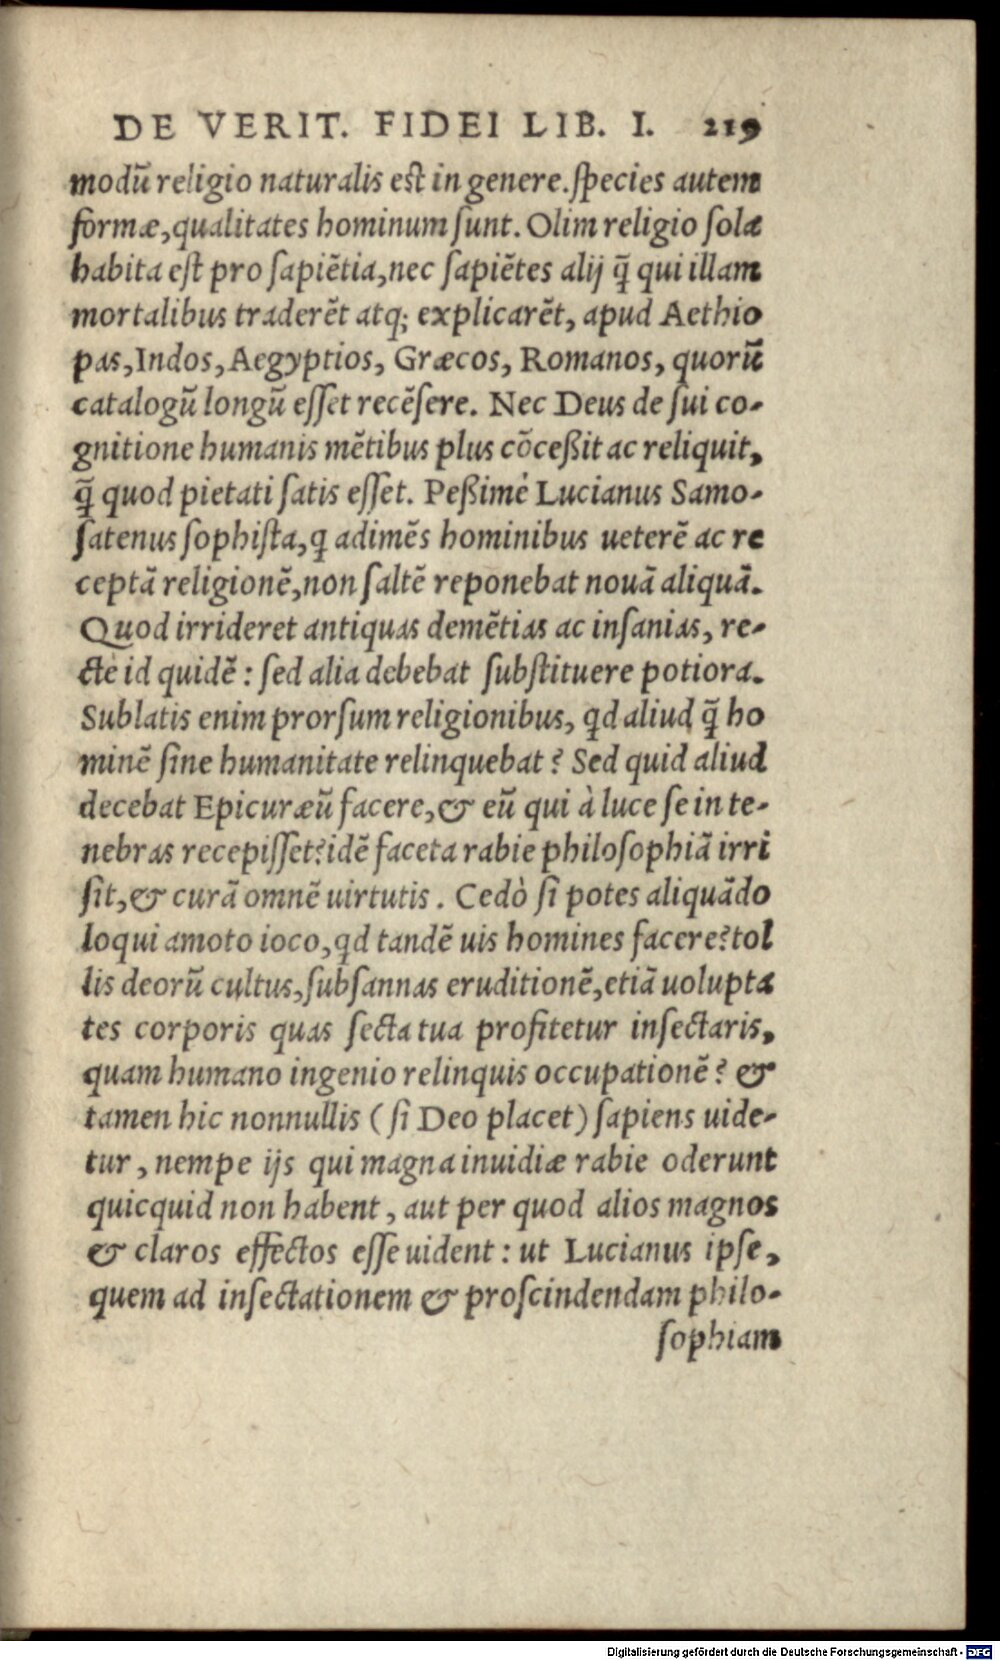 DE VERIT. FIDEI LIB. I. 219
modũ religio naturalis est in genere. species autem
formæ, qualitates hominum sunt. Olim religio sola
habita est pro sapiẽtia, nec sapiẽtes alij q̃ qui illam
mortalibus traderẽt atq; explicarẽt, apud Aethio
pas, Indos, Aegyptios, Græcos, Romanos, quorũ
catalogũ longũ esset recẽsere. Nec Deus de sui co-
gnitione humanis mẽtibus plus cõceßit ac reliquit,
q̃ quod pietati satis esset. Peßimè Lucianus Samo-
satenus sophista, ꝗ adimẽs hominibus ueterẽ ac re
ceptã religionẽ, non saltẽ reponebat nouã aliquã.
Quod irrideret antiquas demẽtias ac insanias, re-
ctè id quidẽ: sed alia debebat substituere potiora.
Sublatis enim prorsum religionibus, ꝗd aliud q̃ ho
minẽ sine humanitate relinquebat? Sed quid aliud
decebat Epicuræũ facere, & eũ qui à luce se in te-
nebras recepisset? idẽ faceta rabie philosophiã irri
sit, & curã omnẽ uirtutis. Cedò si potes aliquãdo
loqui amoto ioco, ꝗd tandẽ uis homines facere? tol
lis deorũ cultus, subsannas eruditionẽ, etiã uolupta
tes corporis quas secta tua profitetur insectaris,
quam humano ingenio relinquis occupationẽ? &
tamen hic nonnullis (si Deo placet) sapiens uide-
tur, nempe ijs qui magna inuidiæ rabie oderunt
quicquid non habent, aut per quod alios magnos
& claros effectos esse uident: ut Lucianus ipse,
quem ad insectationem & proscindendam philo-
sophiam
Digitalisierung gefördert durch die Deutsche Forschungsgemeinschaft - DFG